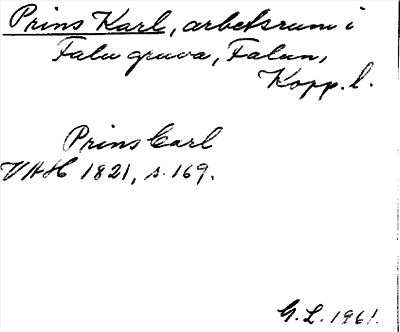 Prins Karl, arbetsrum i
Falu gruva, Falun,
Kopp. l.
Prins Carl
VAH 1821, s. 169.
G.L. 1961.